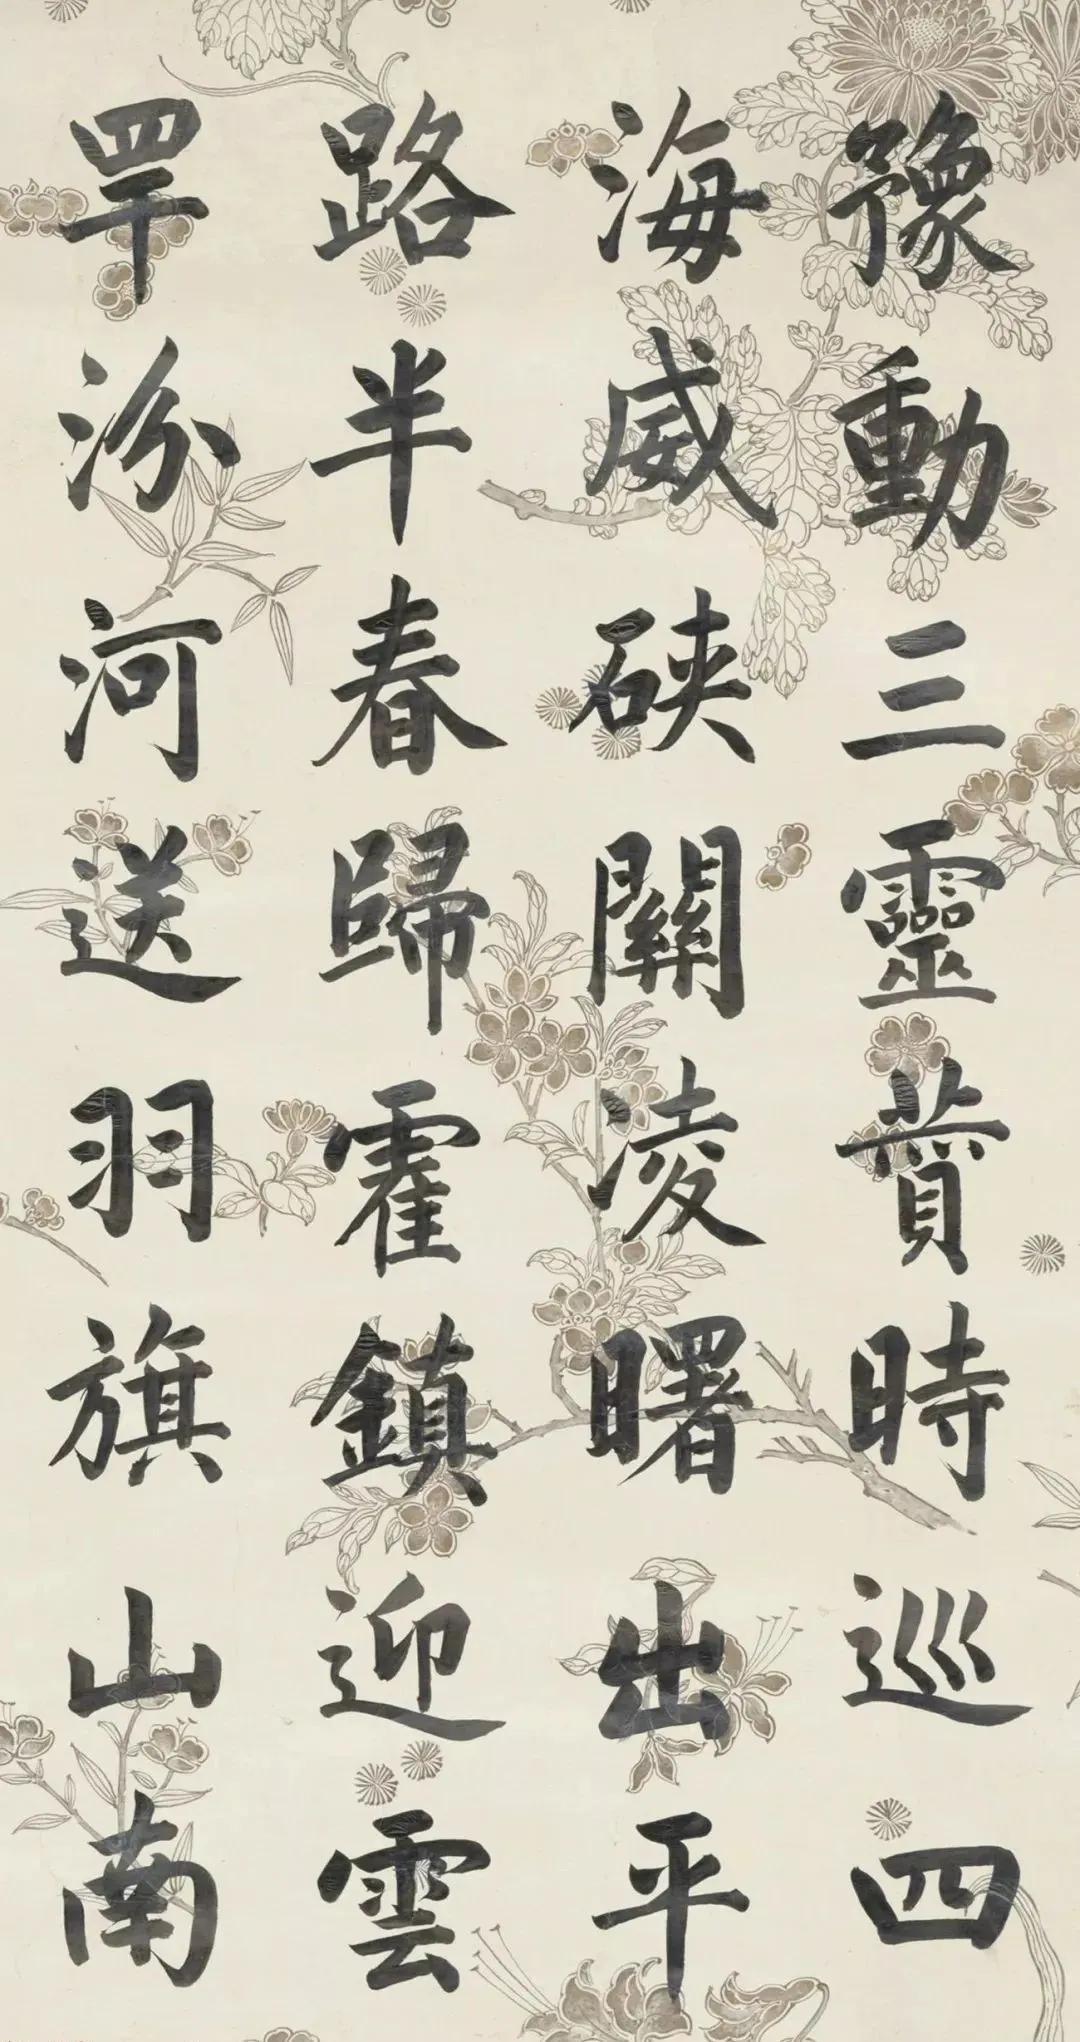 豫動三靈贊時巡四
海威硤關凌曙出平
路半春歸霍鎮迎雲
罕汾河送羽旗山南